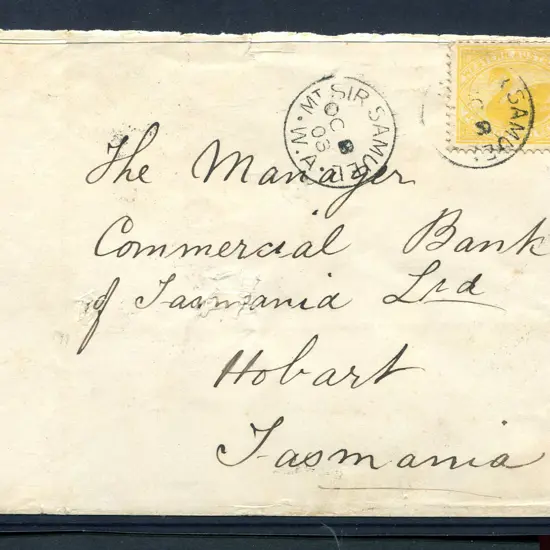 MT SIR SAMUEL . W.A.
OC 8
03
SAMUE
The Manager
Commercial Bank
of Tasmania Ltd
Hobart
Tasmania